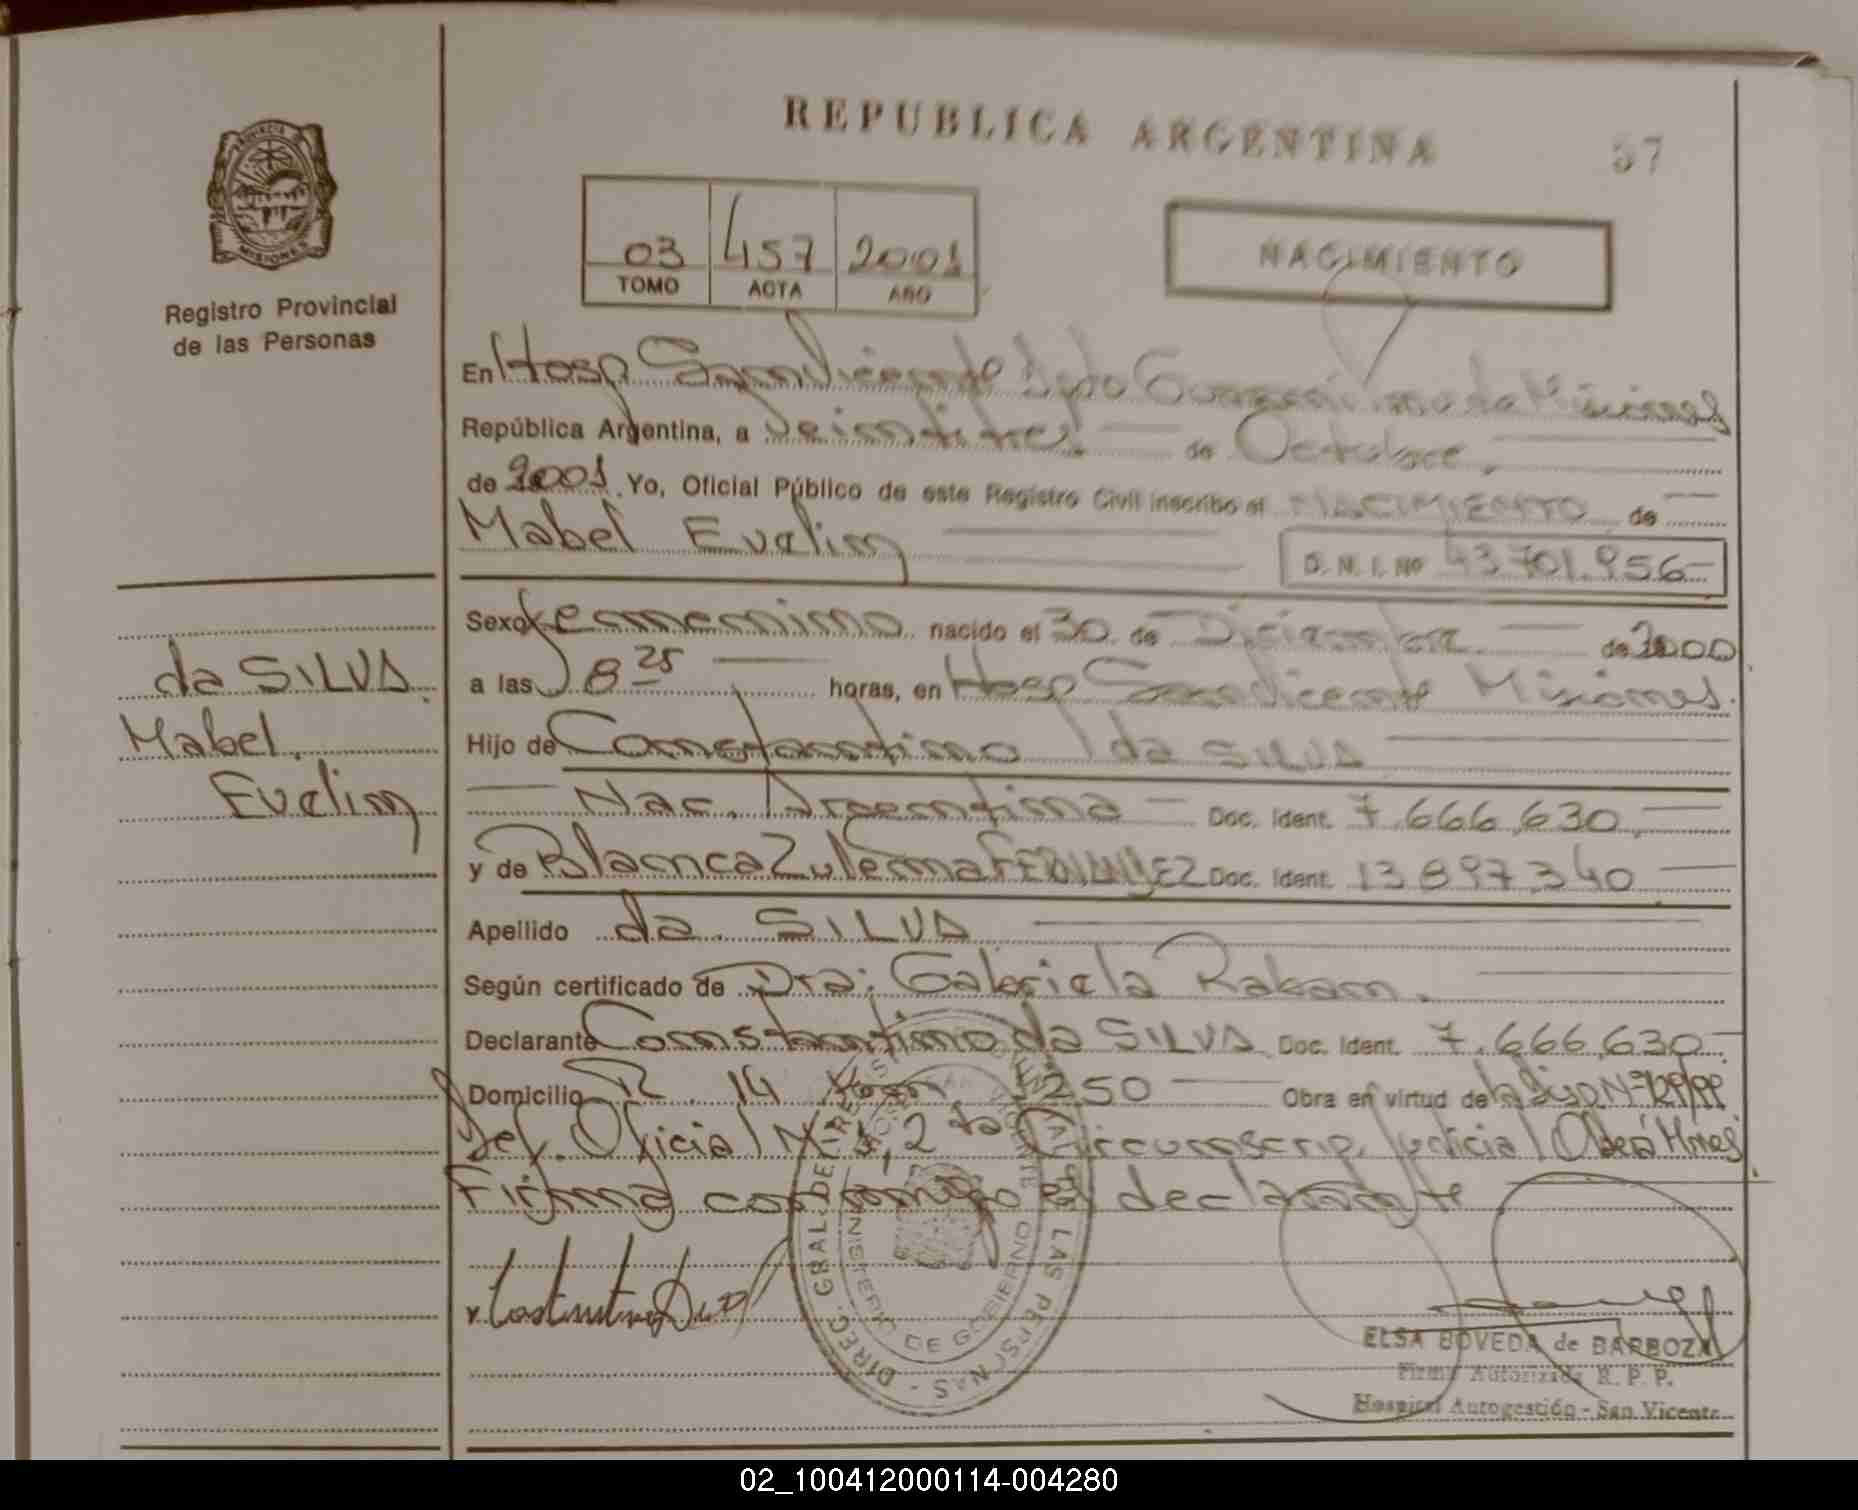 REPUBLICA ARGENTINA
57
PROVINCIA D
MISIONES
Registro Provincial
de las Personas
03 457 2001
TOMO ACTA AÑO
NACIMIENTO
En Hosp San Vicente Dpto Guaraní Misiones
República Argentina, a Veintitres de Octubre,
de 2001. Yo, Oficial Público de este Registro Civil inscribo el NACIMIENTO de
Mabel Evelin
D. N. I. Nº 43701.956-
Sexo femenino nacido el 30 de Diciembre de 2000
a las 8 25 horas, en Hosp San Vicente Misiones.
Hijo de Constantino da SILVA
Nac. Argentina Doc. Ident. 7.666.630
y de Blanca Zulema Doc. Ident. 13897340
Apellido da SILVA
Según certificado de Dra: Gabriela
Declarante Constantino da SILVA Doc. Ident. 7.666.630-
Domicilio R. 14 1250 Obra en virtud de
Def. Oficial Nº 1, 2 da Circunscrip. Judicial Oberá Mnes
Firma conmigo el declarante
da SILVA
Mabel
Evelin
DIREC. GRAL DE LAS PERSONAS
MINISTERIO DE GOBIERNO
ELSA BOVEDA de BARBOZA
Firma Autorizada R. P. P.
Hospital Autogestión - San Vicente
02_100412000114-004280